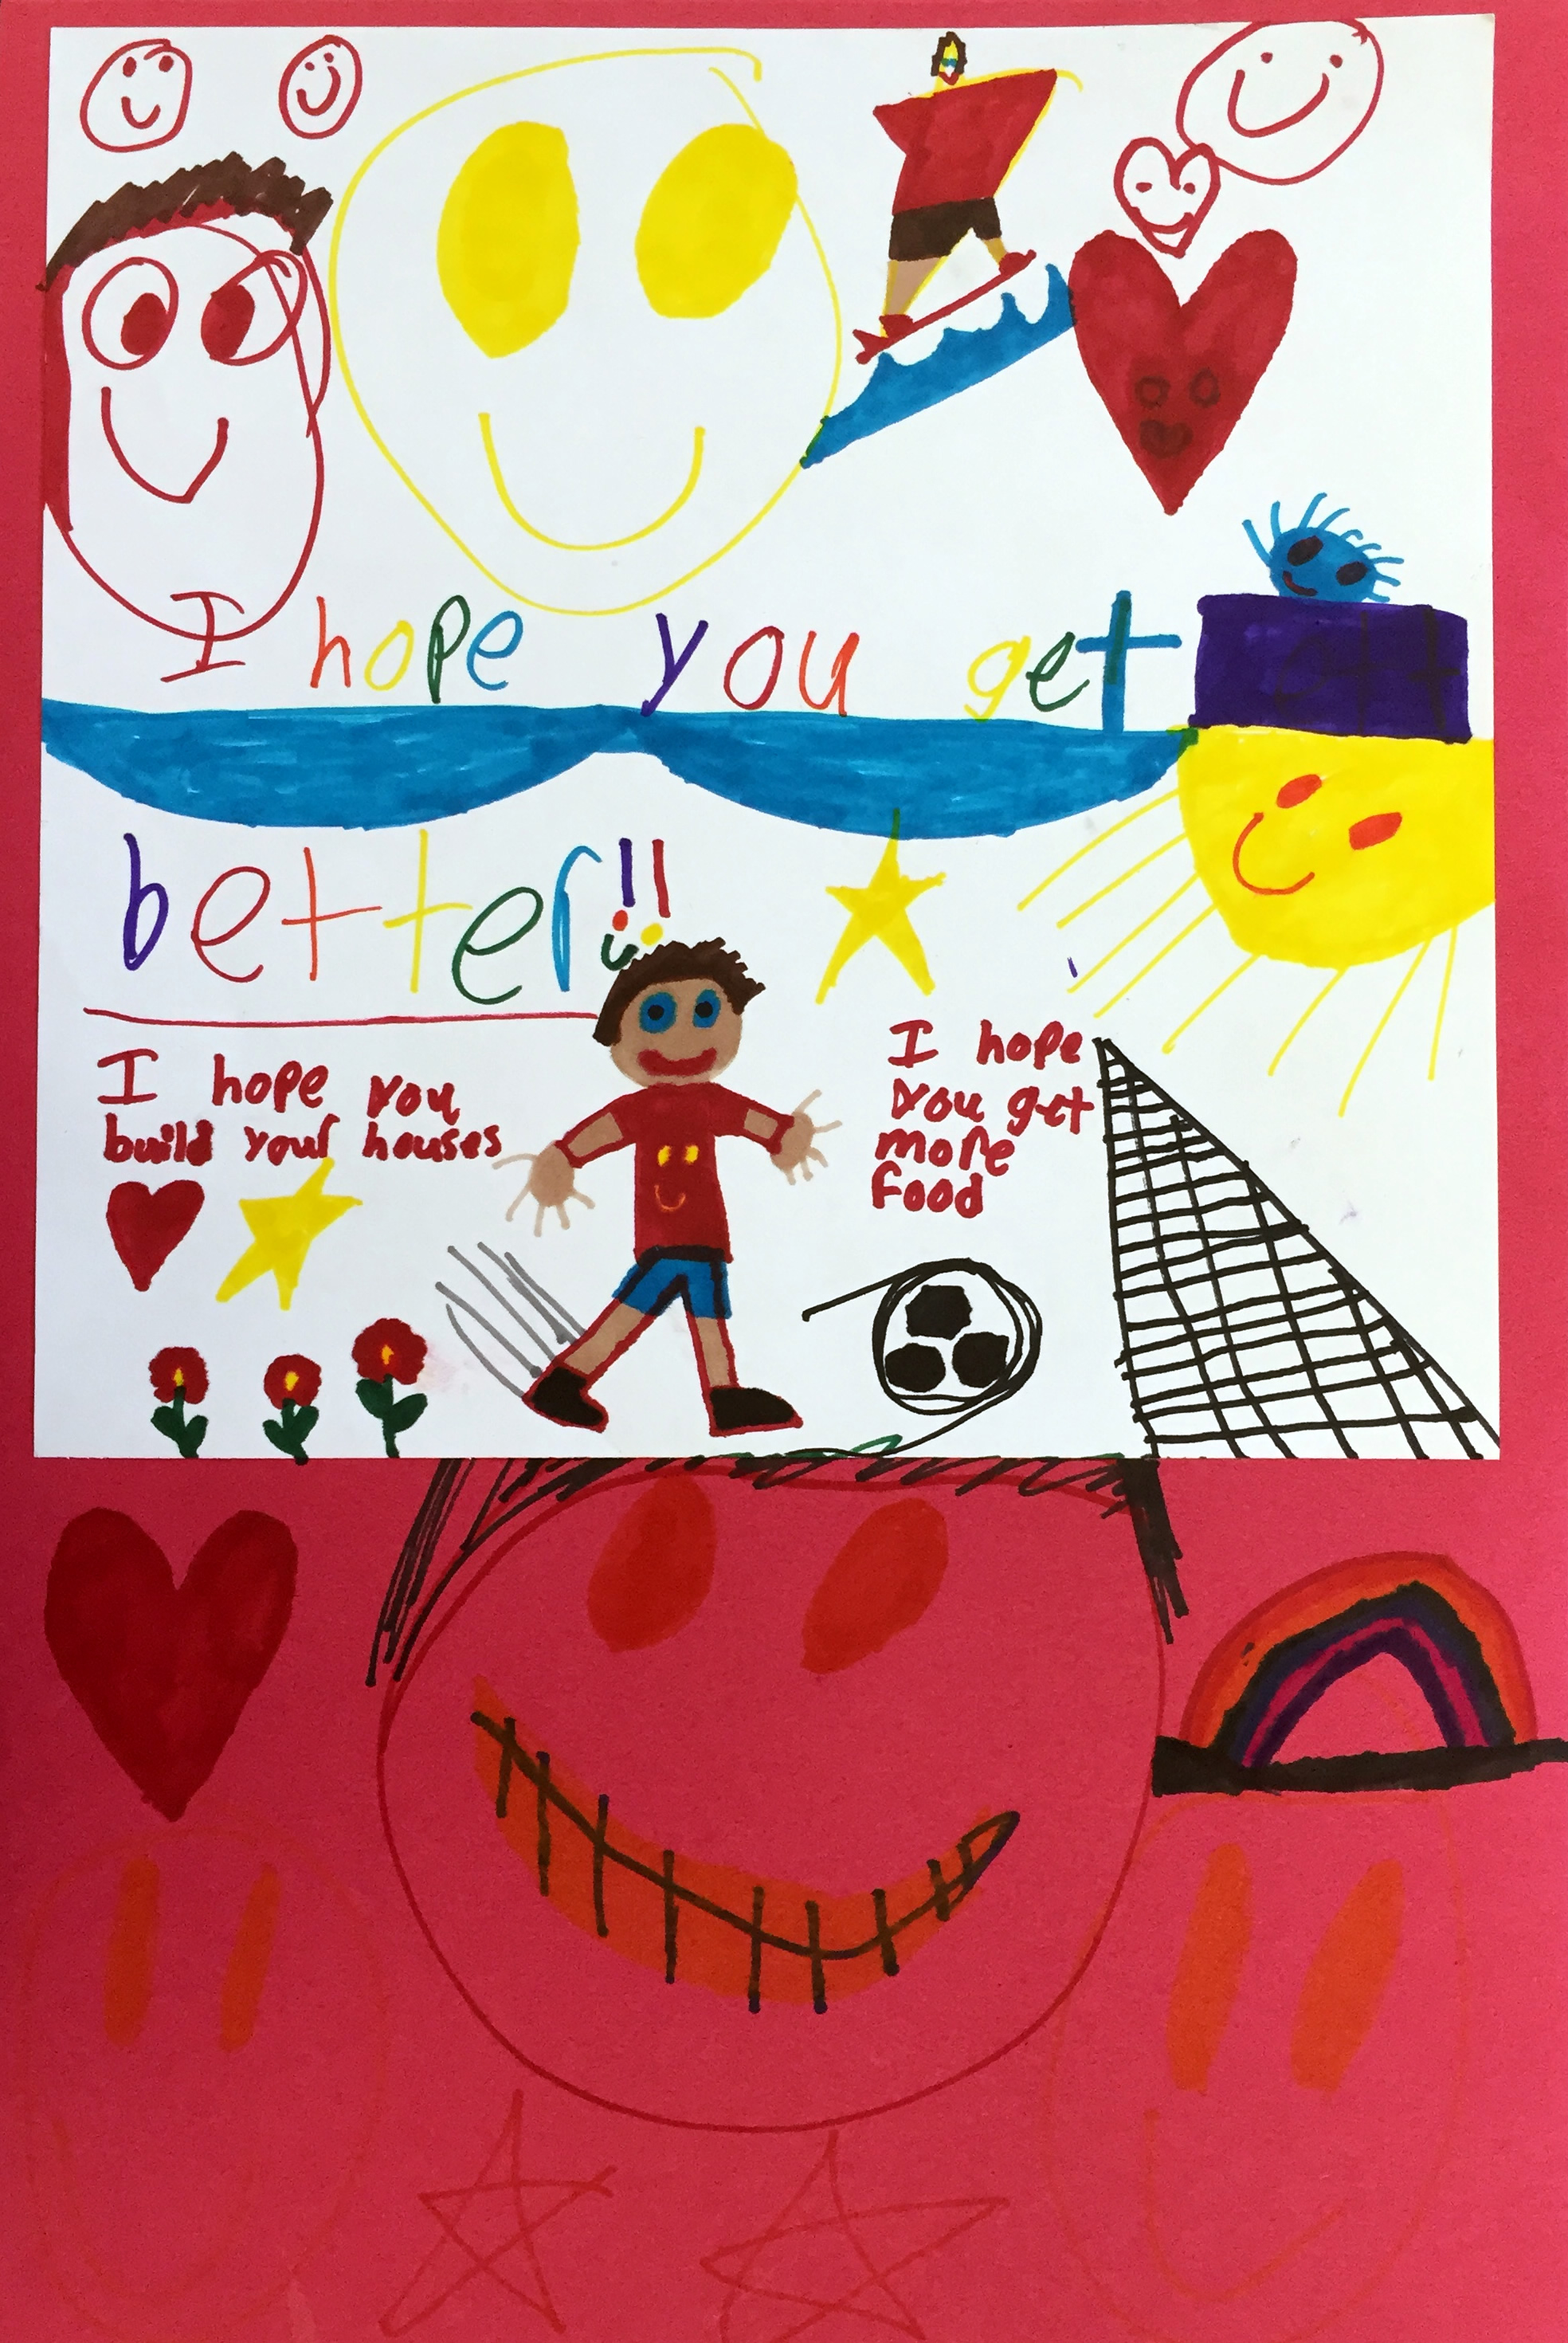 I hope you get
better!!
I hope you
build your houses
I hope
you get
more
food